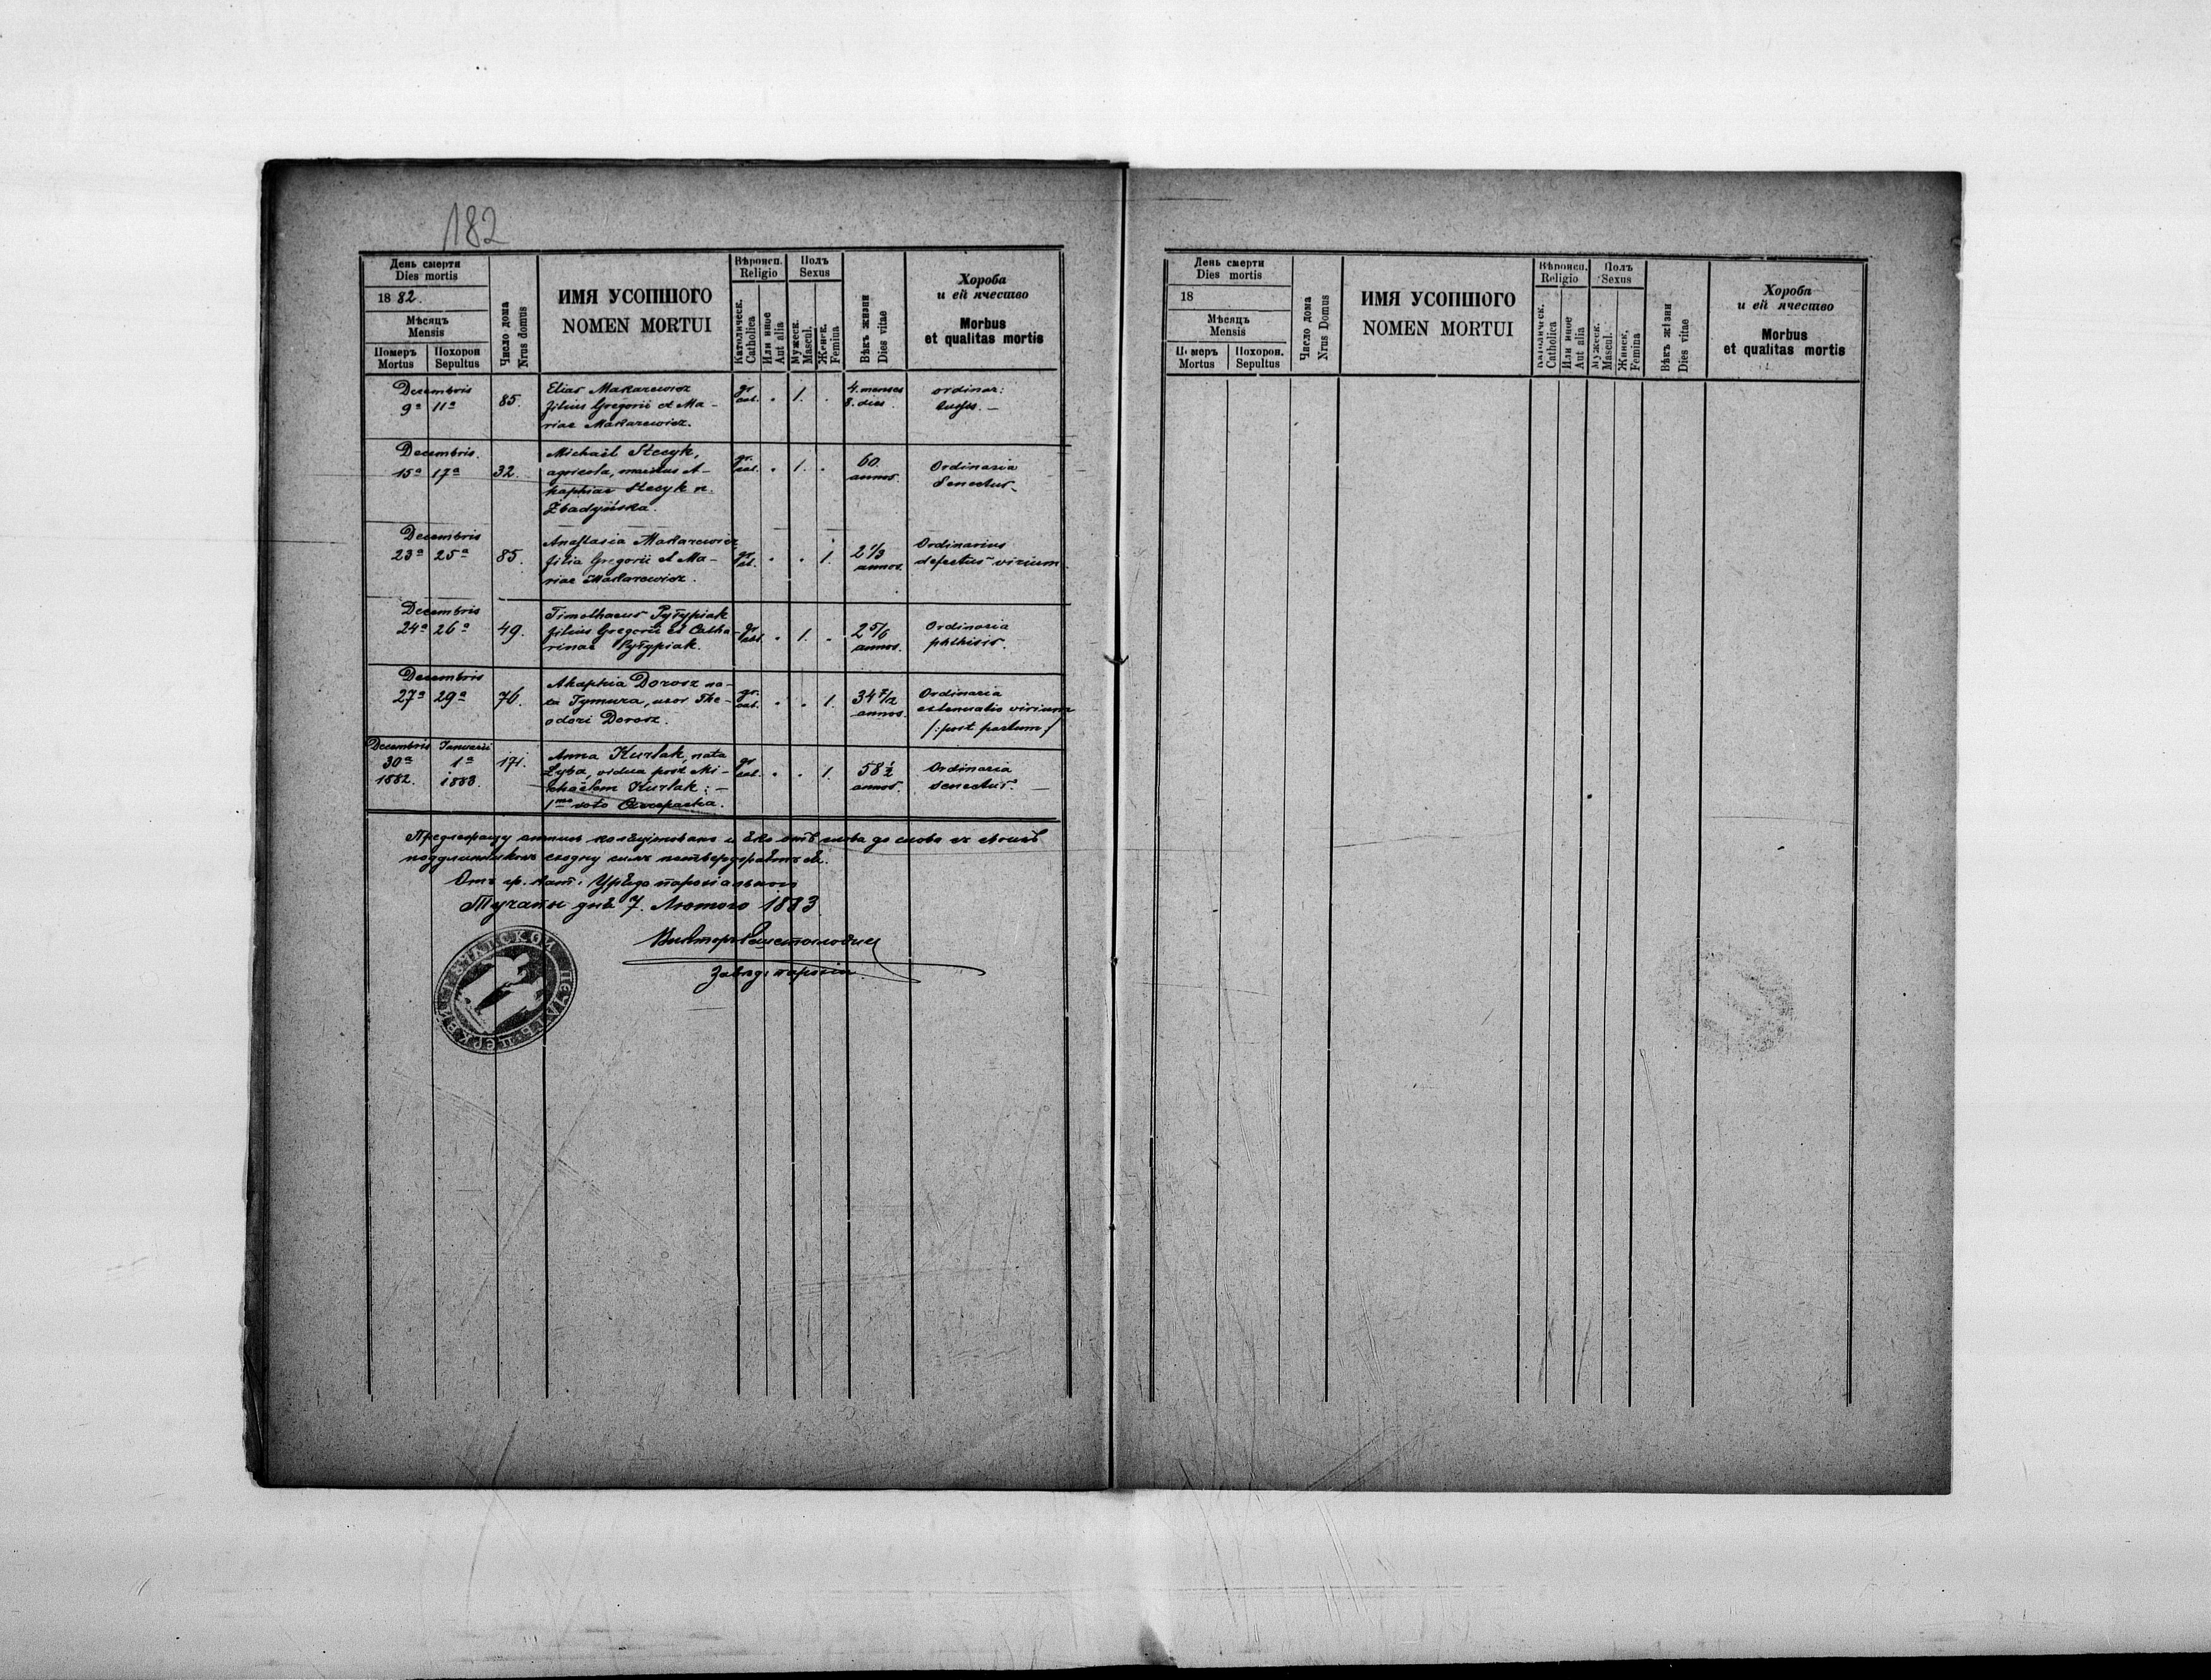 182
День смерти
Dies mortis
18 82.
Мѣсяць
Mensis
Померъ Похорон
Mortus Sepultus
Число дома
Nrus domus
ИМЯ УСОПШОГО
NOMEN MORTUI
Вѣроисп.
Religio
Католическ.
Catholica
Или иное
Aut alia
Полъ
Sexus
Мужеск.
Mascul.
Женск.
Femina
Вѣкъ жизни
Dies vitae
Хороба
и ей ячество
Morbus
et qualitas mortis
Decembris
9ª 11ª
85.
Elias Makarewicz
filius Gregorii et Ma-
riae Makarewicz.
gr
cat.
1.
4. menses
8. dies
ordinar:
Decembris.
15ª 17ª
32.
Michaël Stecyk,
agricola, maritus A-
haphiae Stecyk n.
gr.
cat.
1.
60.
annos.
Ordinaria
Senectus
Decembris
23ª 25ª
85.
Anastasia Makarewicz
filia Gregorii et Ma-
riae Makarewicz.
gr
cat.
1.
2 1/3
annos.
Ordinarius
defectus virium
Decembris
24ª 26ª
49.
Timothaeus Pyłypiak
filius Gregorii et Catha-
rinae Pyłypiak.
gr
cat.
1.
2 5/6
annos.
Ordinaria
phthisis.
Decembris
27ª 29ª
76.
Ahaphia Dorosz na-
ta Tymura, uxor The-
odori Dorosz.
gr.
cat.
1.
34 7/12
annos.
Ordinaria
extenuatio virium
/:post partum:/
Decembris Januarii
30ª 1ª
1882. 1883.
171.
Anna Kurlak, nata
Łyba, vidua post Mi-
chaëlem Kurlak: -
1mo voto
gr
cat.
1.
58 1/2
annos.
Ordinaria
senectus.
слова до слова
Отъ гр. кат. Урядо парохіального
дня 7. Лютого 1883
Завѣд. парохіи
День смерти
Dies mortis
18
Мѣсяць
Mensis
Померъ Похорон.
Mortus Sepultus
Число дома
Nrus Domus
ИМЯ УСОПШОГО
NOMEN MORTUI
Вѣроисп.
Religio
Католическ.
Catholica
Или иное
Aut alia
Полъ
Sexus
Мужеск.
Mascul.
Женск.
Femina
Вѣкъ жізни
Dies vitae
Хороба
и ей ячество
Morbus
et qualitas mortis